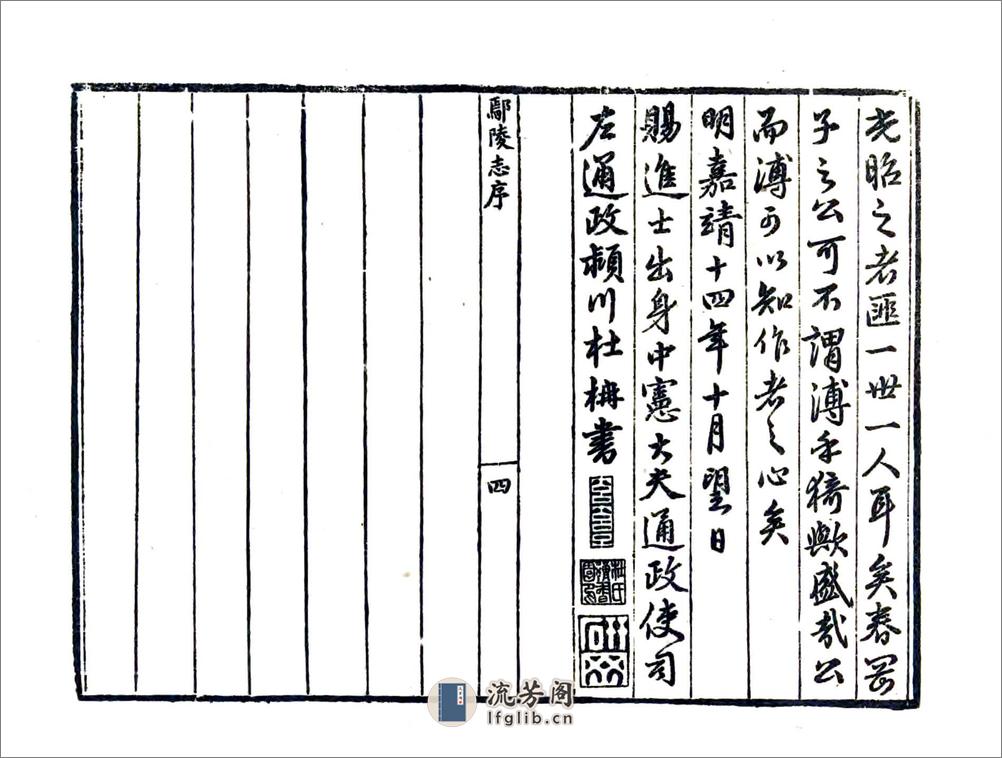 光昭之者匪一世一人耳矣春岡
子之公可不謂溥乎猗歟盛哉公
而溥可以知作者之心矣
明嘉靖十四年十月望日
賜進士出身中憲大夫通政使司
左通政潁川杜柟書
鄢陵志序
四
流芳阁
lfglib.cn